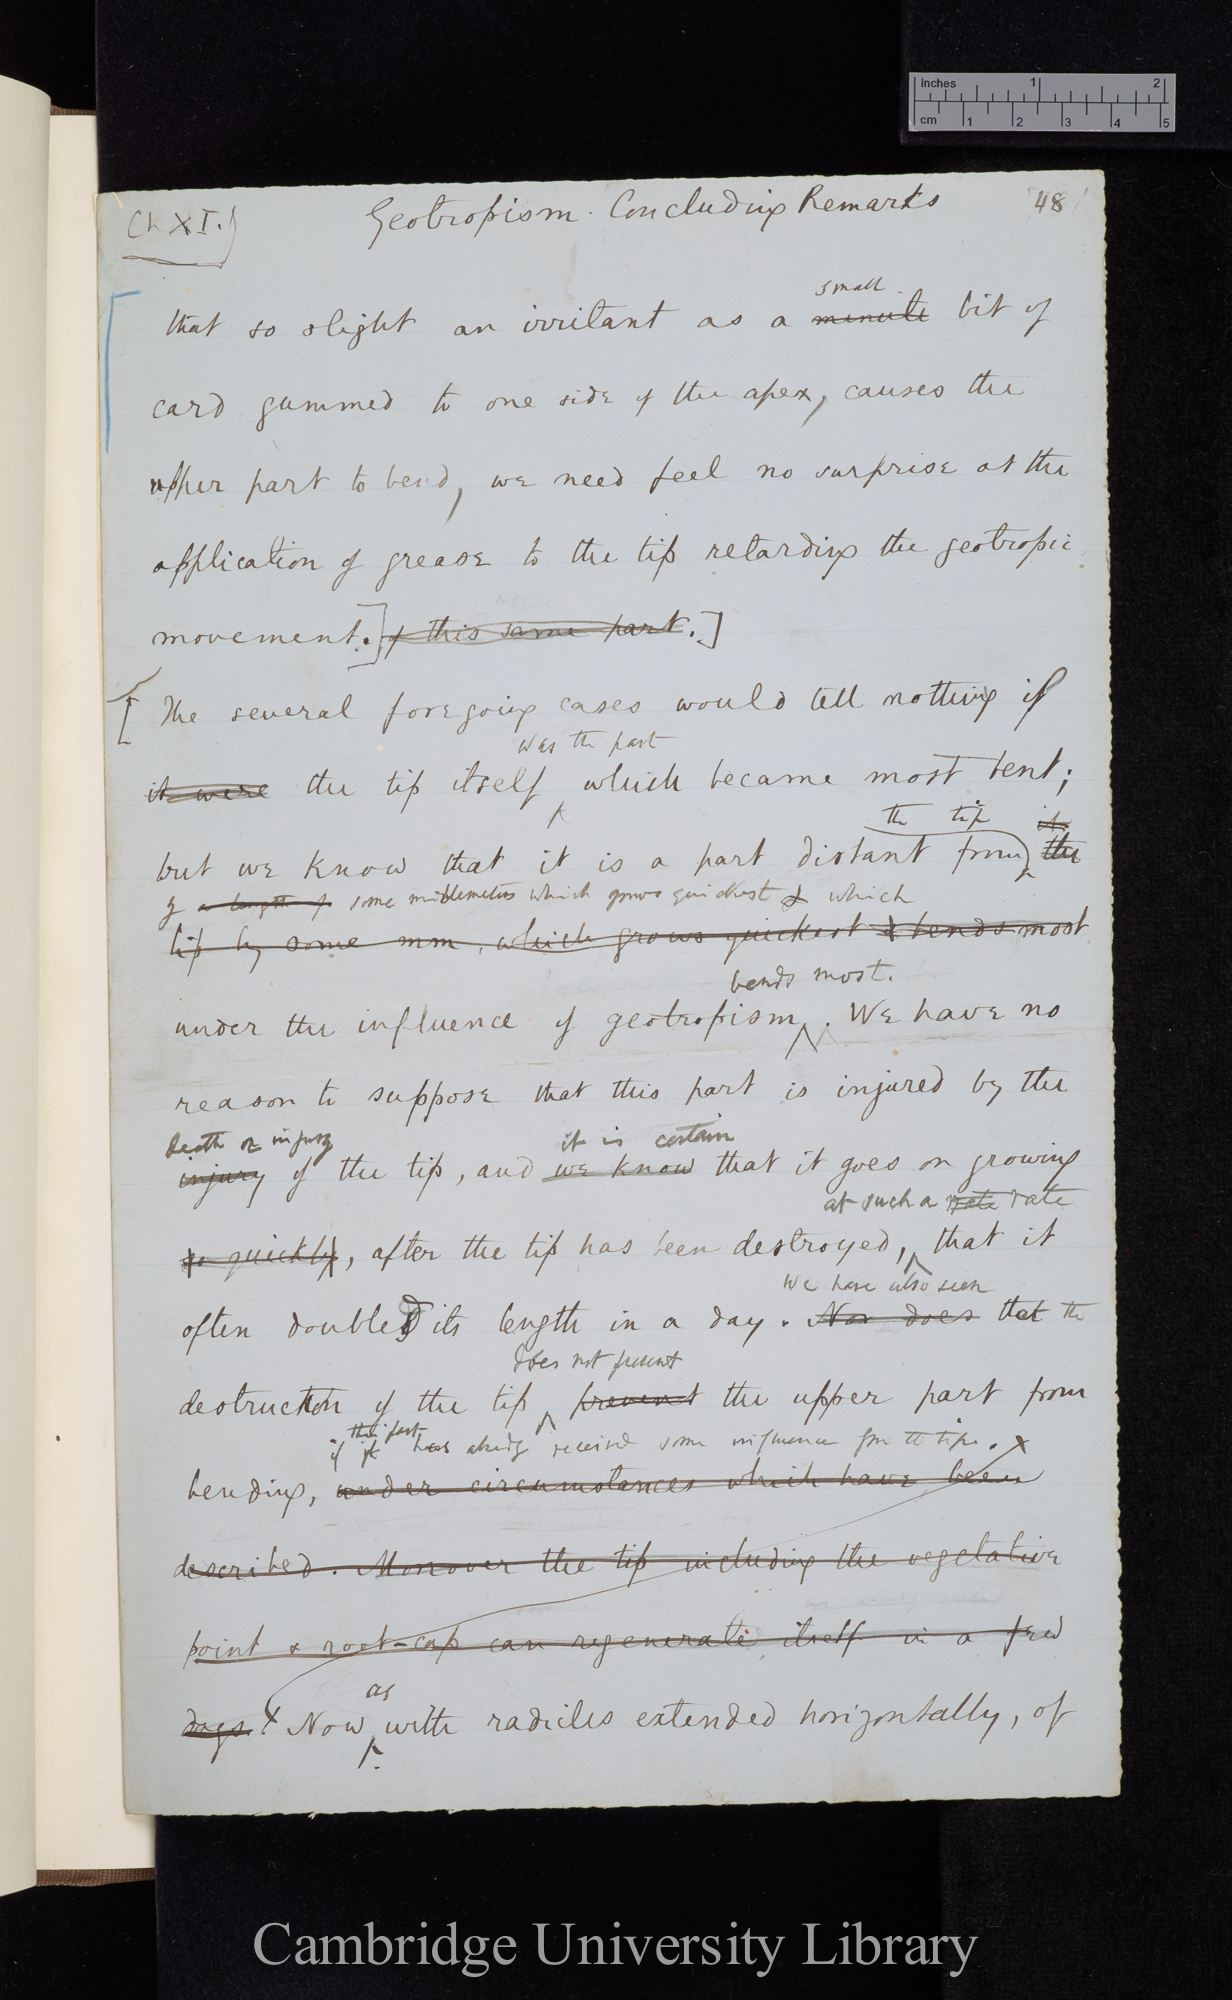 Inches 1 2
cm 1 2 3 4 5
Ch XI.) Geotropism. Concluding Remarks 48
small
that so slight an irritant as a minute bit of
card gummed to one side of the apex, causes the
upper part to bend, we need feel no surprise at the
application of grease to the tip retarding the geotropic
movement.] of this same part.]
[The several foregoing cases would tell nothing if
was the part
it were the tip itself which became most bent;
the tip it
but we know that it is a part distant from the
by a length of some millemeters which grows quickest & which
tip by some mm, which grows quickest & bends most
bends most.
under the influence of geotropism. We have no
reason to suppose that this part is injured by the
death or injury it is certain
injury of the tip, and we know that it goes on growing
at such a rate rate
so quickly, after the tip has been destroyed, that it
we have also seen
often doubled its length in a day. Nor does that the
does not prevent
destruction of the tip prevent the upper part from
this part
if it has already received some influence from the tip. x
bending, under circumstances which have been
described. Moreover the tip including the vegetative
point & root-cap can regenerate itself in a few
as
days. Now with radicles extended horizontally, of
Cambridge University Library